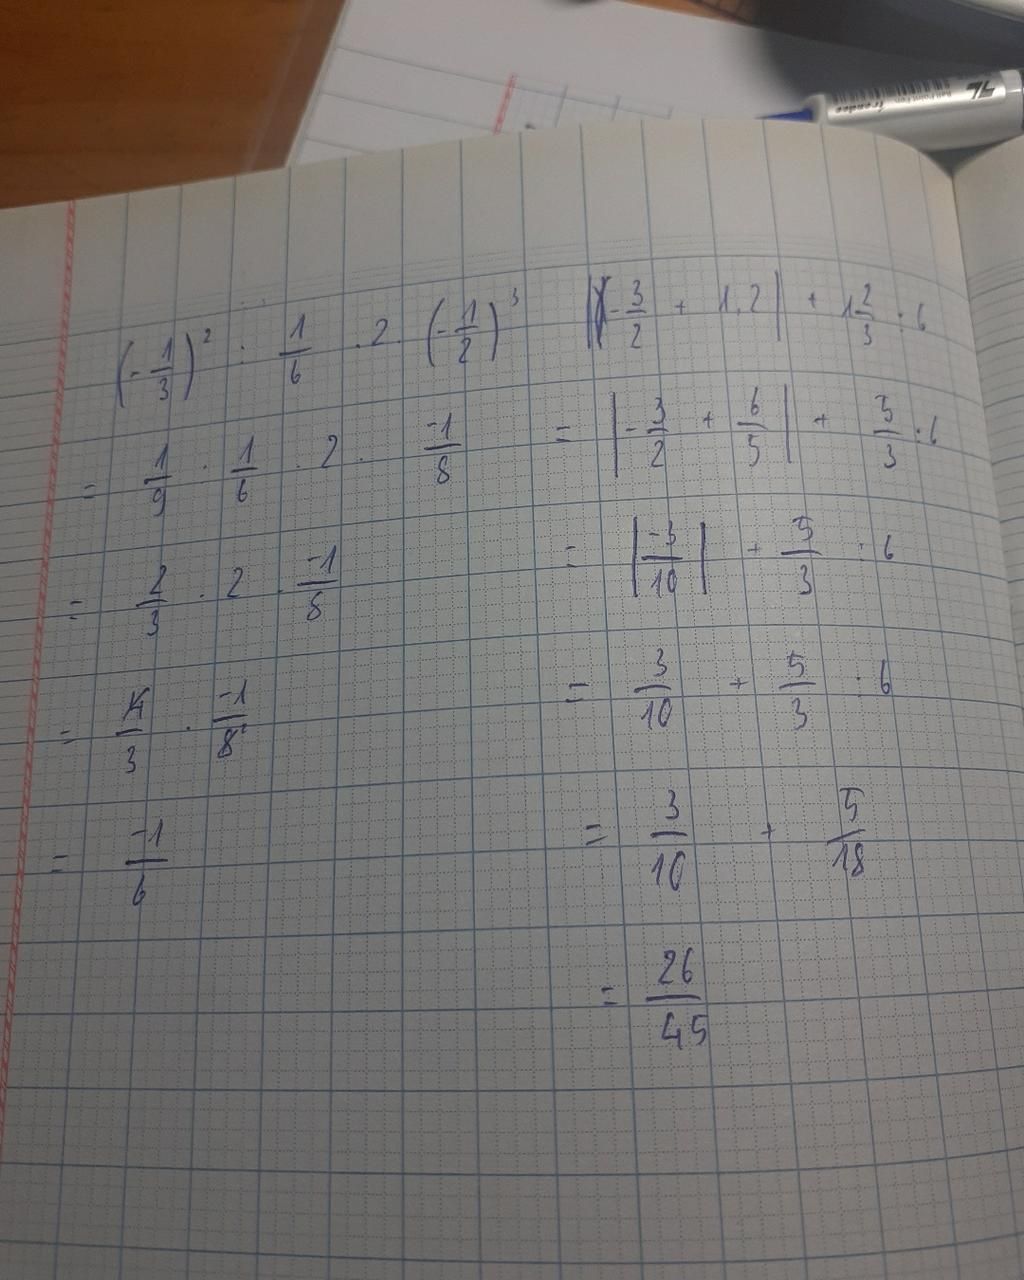 (-1/3)² : 1/6 . 2 . (-1/2)³
= 1/9 : 1/6 . 2 . -1/8
= 2/3 . 2 . -1/8
= 4/3 . -1/8
= -1/6
|-3/2 + 1,2| + 1 2/3 : 6
= |-3/2 + 6/5| + 5/3 : 6
= |-3/10| + 5/3 : 6
= 3/10 + 5/3 : 6
= 3/10 + 5/18
= 26/45